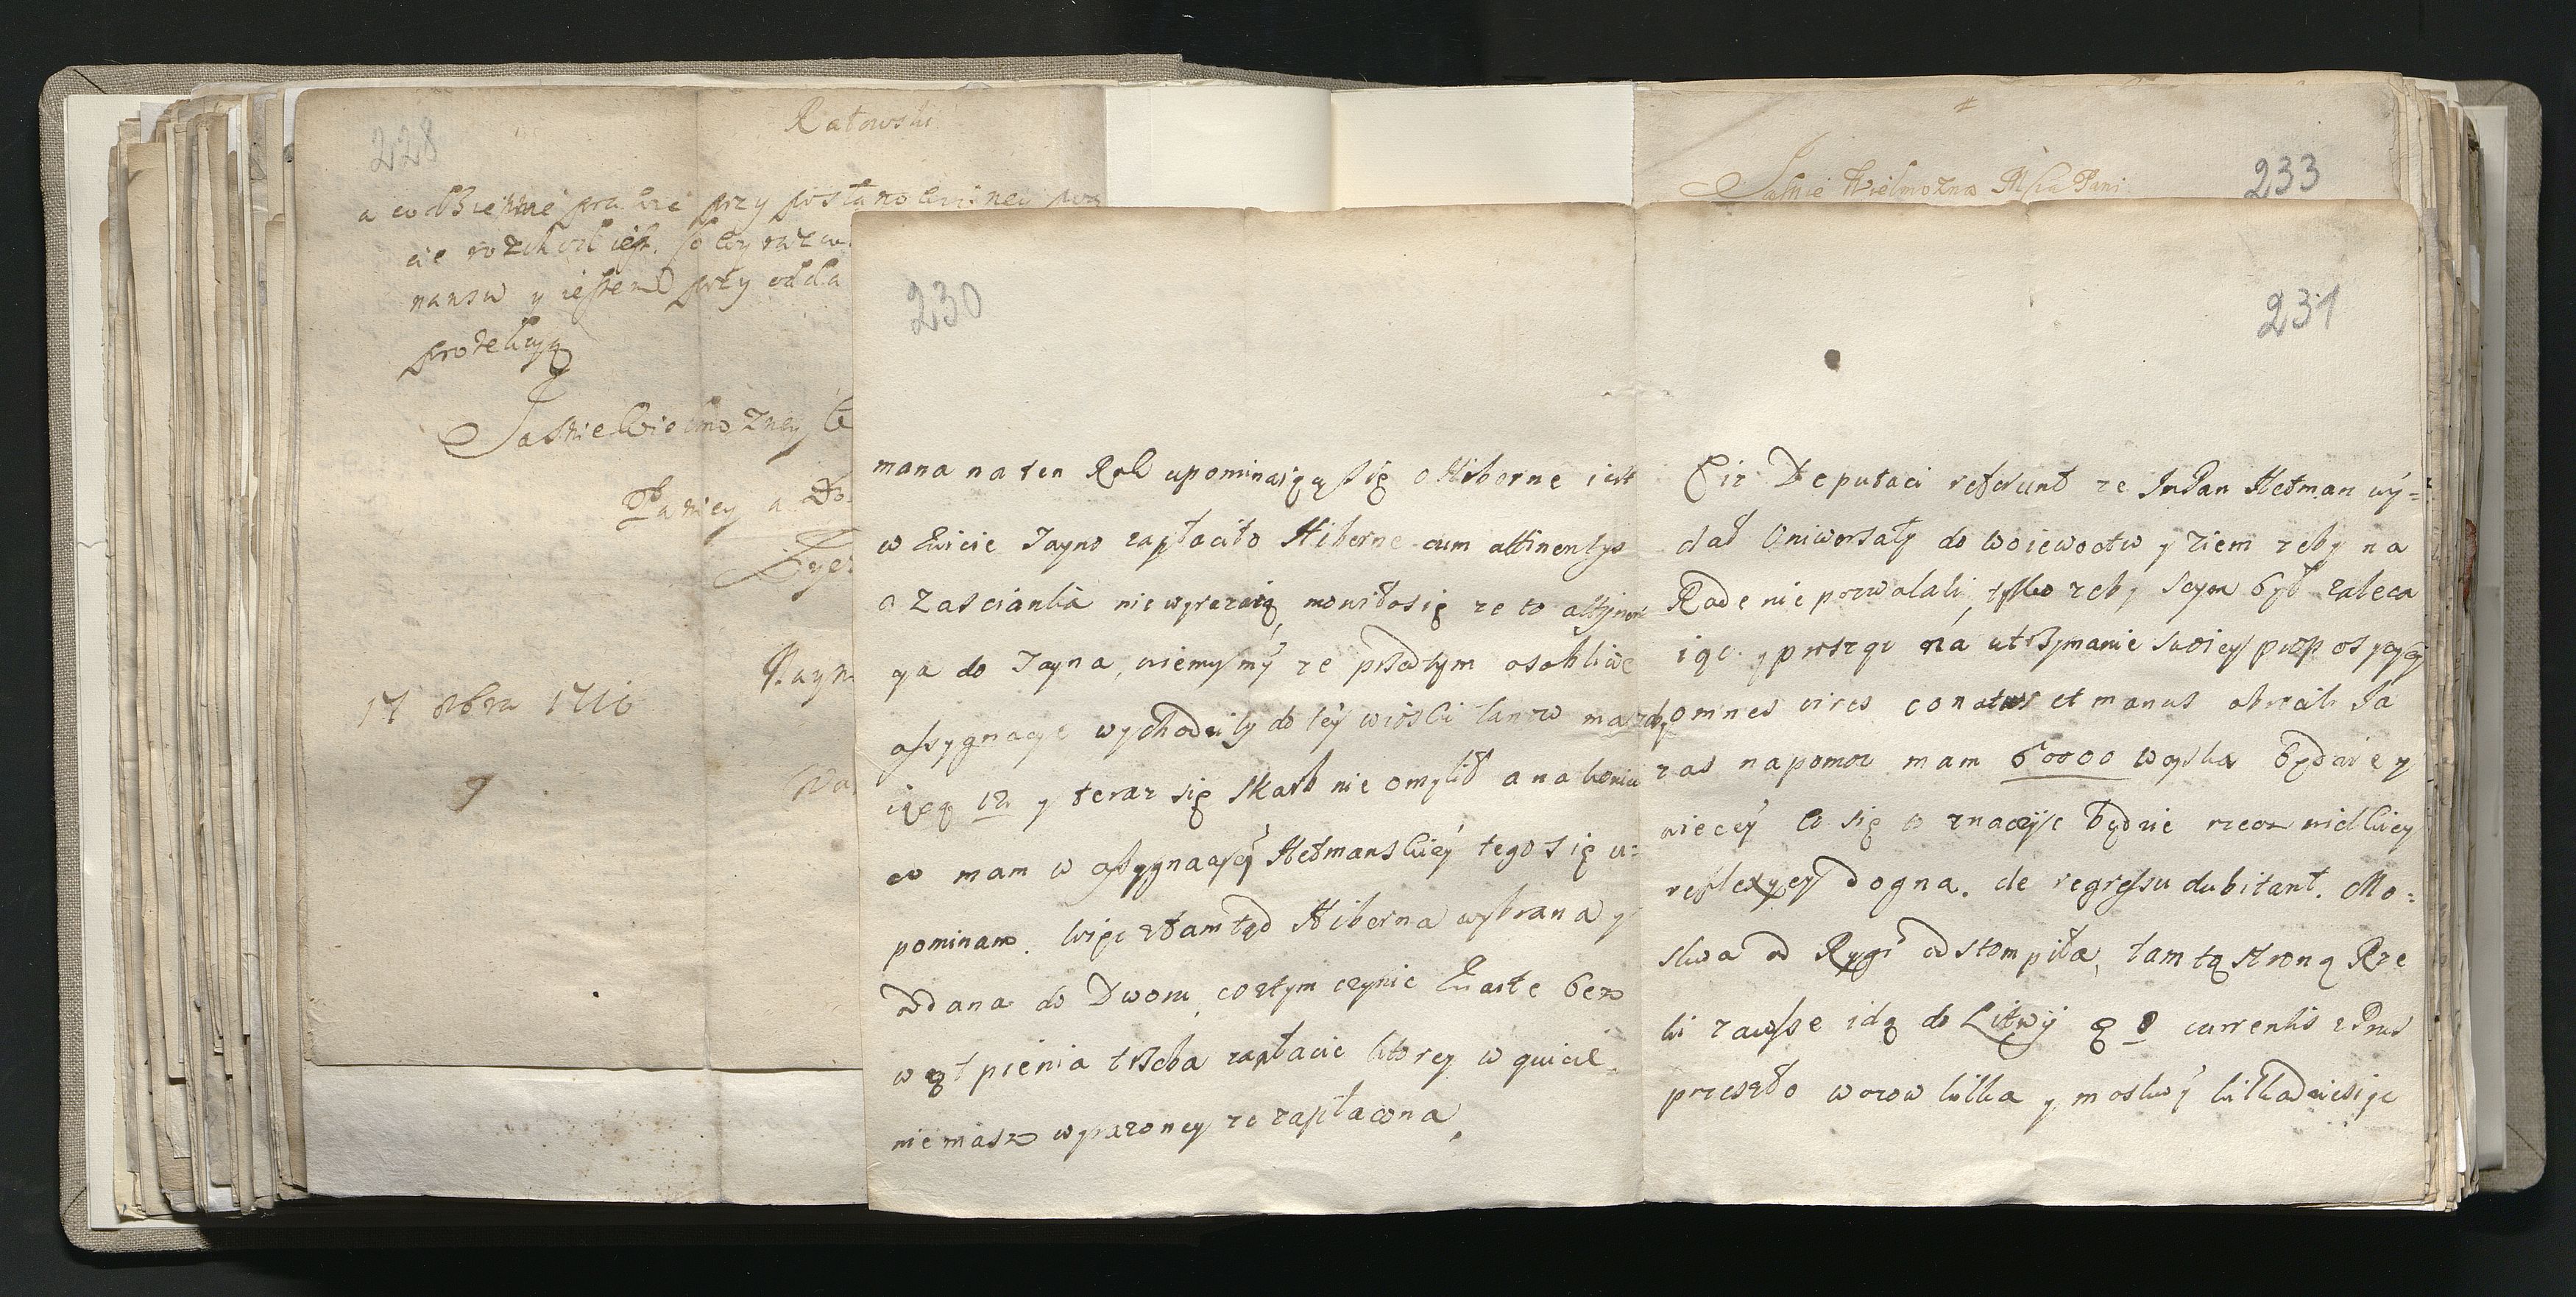 228
Ratowski
przy postanowionej
nansu y iestem przy odda
protekcyą
Jasnie Wielmozney
Paniey a Do
17 8bra 1716
230
mana na ten Rok upominaiąca się o Hiberne iest
w kwicie Jayno zapłaciło Hiberne cum attinentys
a Zascianka nie wyrazaią, mowiłosię ze to attynen
ya do Jayna, wiemy my ze przedtym osobliwe
assygnacye wychodziły do tey wioski łanow maią
iącą 12 y teraz się skarb nie omylił a na koniu
co mam w assygnacyey Hetmanskiey tego się u=
pominam. Więc ztamtąd Hiberna wybrana y
oddana do Dworu, coztym czynic kwarte bez
wątpienia trzeba zapłacic ktorey w quicie
nie masz wyrazoney ze zapłacona.
233
Jasnie Wielmozna Mscia Pani
231
Cir Deputaci referunt ze JmPan Hetman wy=
dał Uniwersały do woiewodtw y ziem zeby na
Rade nie pozwalali, tylko zeby Seym był zaleca
iąc. y proszac na utrzymanie swoiey propozycyey
omnes vires conatus et manus obrocili Ja
zas na pomoc mam 60000 woyska będzie y
wiecey co się w znaczyc będzie rzecz wielkiey
reflexyey dogna. de regressu dubitant. Mo=
skwa od Rygi odstompiła, tamtą stroną Rze
ki zawsze idą do Litwy 8 currentis z Prus
przeszło wozow kilka y moskwy kilkadziesiąt